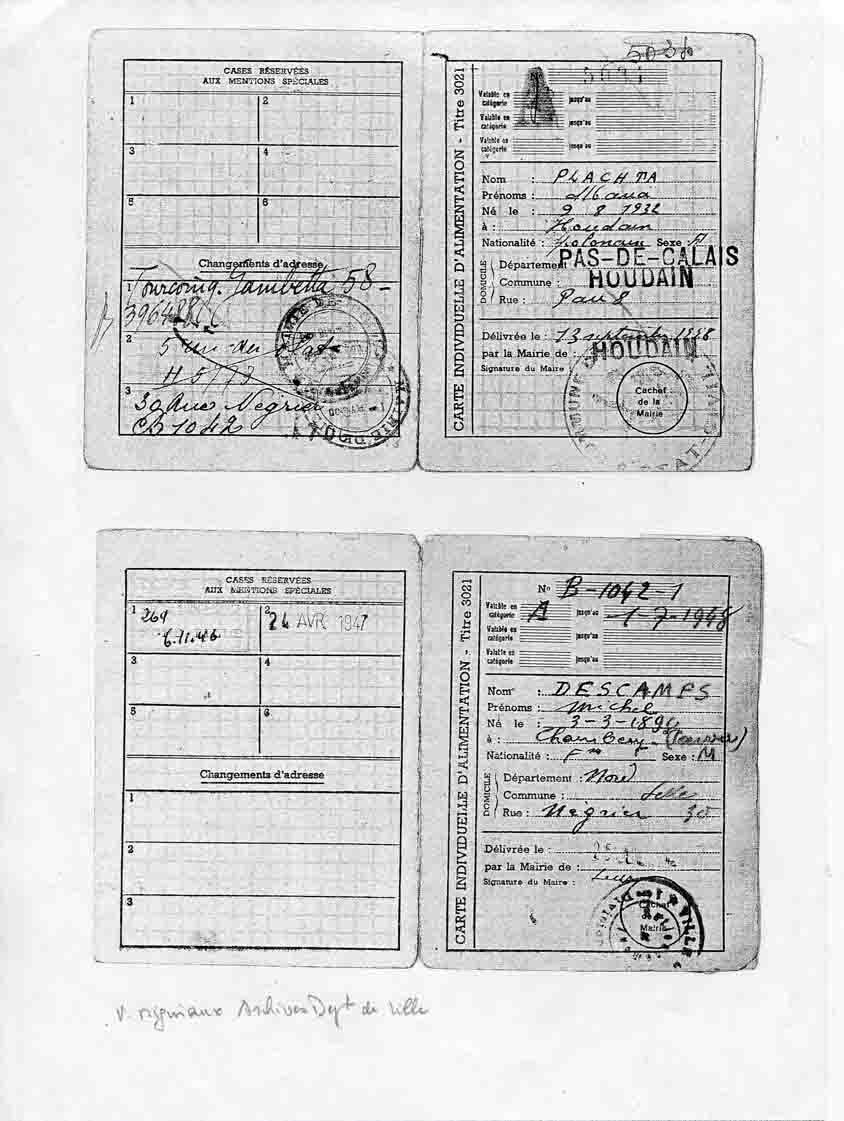 CASES RÉSERVÉES
AUX MENTIONS SPÉCIALES
1 2
3 4
5 6
Changements d'adresse
1 Tourcoing. Gambetta 58-
39648
2 5 rue des
H 5/73
3 30 Rue Negrier
CB 1042
MAIRIE DE
MAIRIE
CARTE INDIVIDUELLE D'ALIMENTATION - Titre 3021
5036
5031
Valable en catégorie A jusqu'au
Valable en catégorie jusqu'au
Valable en catégorie jusqu'au
Nom : PLACHTA
Prénoms :
Né le : 9 8 1932
à : Houdain
Nationalité : polonais Sexe :
DOMICILE
Département PAS-DE-CALAIS
Commune : HOUDAIN
Rue :
Délivrée le : 13 septembre
par la Mairie de : HOUDAIN
Signature du Maire
Cachet
de la
Mairie
CASES RÉSERVÉES
AUX MENTIONS SPÉCIALES
1 269 2 24 AVR 1947
6.11.46
3 4
5 6
Changements d'adresse
1
2
3
CARTE INDIVIDUELLE D'ALIMENTATION - Titre 3021
No B-1042-1
Valable en catégorie A jusqu'au -1-7-1948
Valable en catégorie jusqu'au
Valable en catégorie jusqu'au
Nom : DESCAMPS
Prénoms : Michel
Né le : 3-3-1894
à : Chambery
Nationalité : Fse Sexe : M
DOMICILE
Département : Nord
Commune : Lille
Rue : Négrier 30
Délivrée le :
par la Mairie de :
Signature du Maire :
Cachet
Mairie
VILLE
V. originaux Archives Dept de Lille